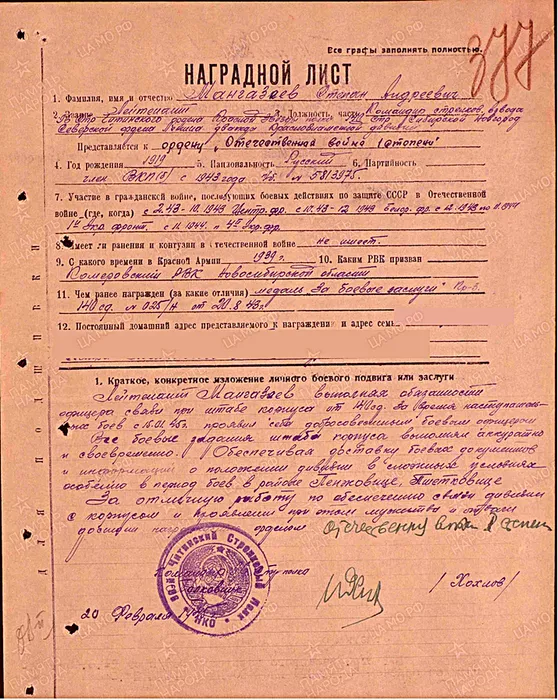 Все графы заполнять полностью.
377
НАГРАДНОЙ ЛИСТ
1. Фамилия, имя и отчество Мангазеев Степан Андреевич
2. Звание Лейтенант 3. Должность, часть Командир стрелков. взвода
Читинского ордена Красной Звезды полка Сибирской Новгород
Северской ордена Ленина дважды Краснознаменной дивизии
Представляется к ордену "Отечественная война I степени"
4. Год рождения 1919 5. Национальность Русский 6. Партийность
член ВКП(б) с 1943 года п/б. № 5813975.
7. Участие в гражданской войне, последующих боевых действиях по защите СССР в Отечественной
войне (где, когда) с 2.43-10.1943 Центр.фр. с 10.43-12.1943 Белор. фр. с 12.1943 по 11.1944
1й Укр фронт. с 11.1944. 4 Укр.фр.
8. Имеет ли ранения и контузии в отечественной войне не имеет.
9. С какого времени в Красной Армии 1939г. 10. Каким РВК призван
Кемеровский РВК Новосибирской области
11. Чем ранее награжден (за какие отличия) медаль "За боевые заслуги"
140 сд. № 025/н от 20.8.43г.
12. Постоянный домашний адрес представляемого к награждению и адрес
1. Краткое, конкретное изложение личного боевого подвига или заслуги
Лейтенант Мангазеев выполняя обязанности
офицера связи при штабе корпуса от 140 сд. За время наступатель-
ных боев с 15.01.45г. проявил себя добросовестным боевым офицером
Все боевые задания штаба корпуса выполнял аккуратно
и своевременно. Обеспечивая доставку боевых документов
и информаций о положении дивизии в сложных условиях
особенно в период боев в районе
За отличную работу по обеспечению связи дивизии
с корпусом и проявленные при этом мужество и отвагу
достоин орденом Отечественной войны
Читинский Стрелковый Полк
НКО
Командир полка
Полковник
/Хохлов/
20 Февраля
ЦАМО.РФ